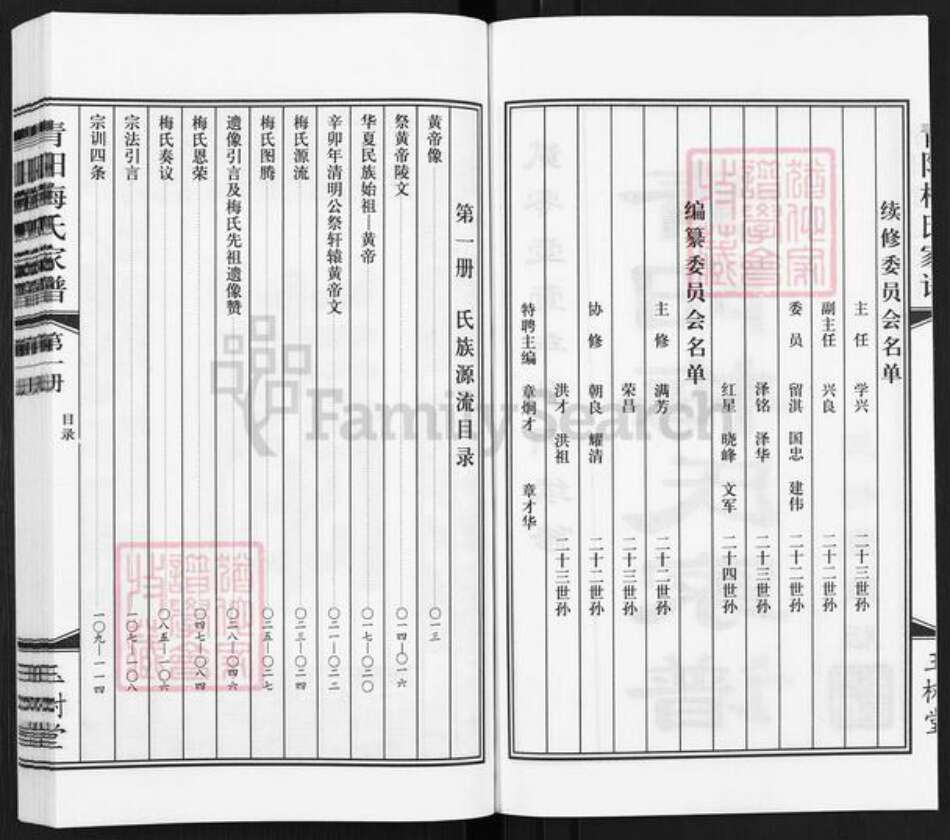 续修委员会名单
主任 学兴 二十三世孙
副主任 兴良 二十二世孙
委员 留淇 国忠 建伟 二十二世孙
泽铭 泽华 二十三世孙
红星 晓峰 文军 二十四世孙
编纂委员会名单
主修 满芳 二十二世孙
荣昌 二十三世孙
协修 朝良 耀清 二十二世孙
洪才 洪祖 二十三世孙
特聘主编 章炯才 章才华
第一册 氏族源流目录
黄帝像 〇一三
祭黄帝陵文 〇一四—〇一六
华夏民族始祖—黄帝 〇一七—〇二〇
辛卯年清明公祭轩辕黄帝文 〇二一—〇二二
梅氏源流 〇二三—〇二四
梅氏图腾 〇二五—〇二七
遗像引言及梅氏先祖遗像赞 〇二八—〇四六
梅氏恩荣 〇四七—〇八四
梅氏奏议 〇八五—一〇六
宗法引言 一〇七—一〇八
宗训四条 一〇九—一一四
青阳梅氏家谱
第一册
目录
玉树堂
FamilySearch